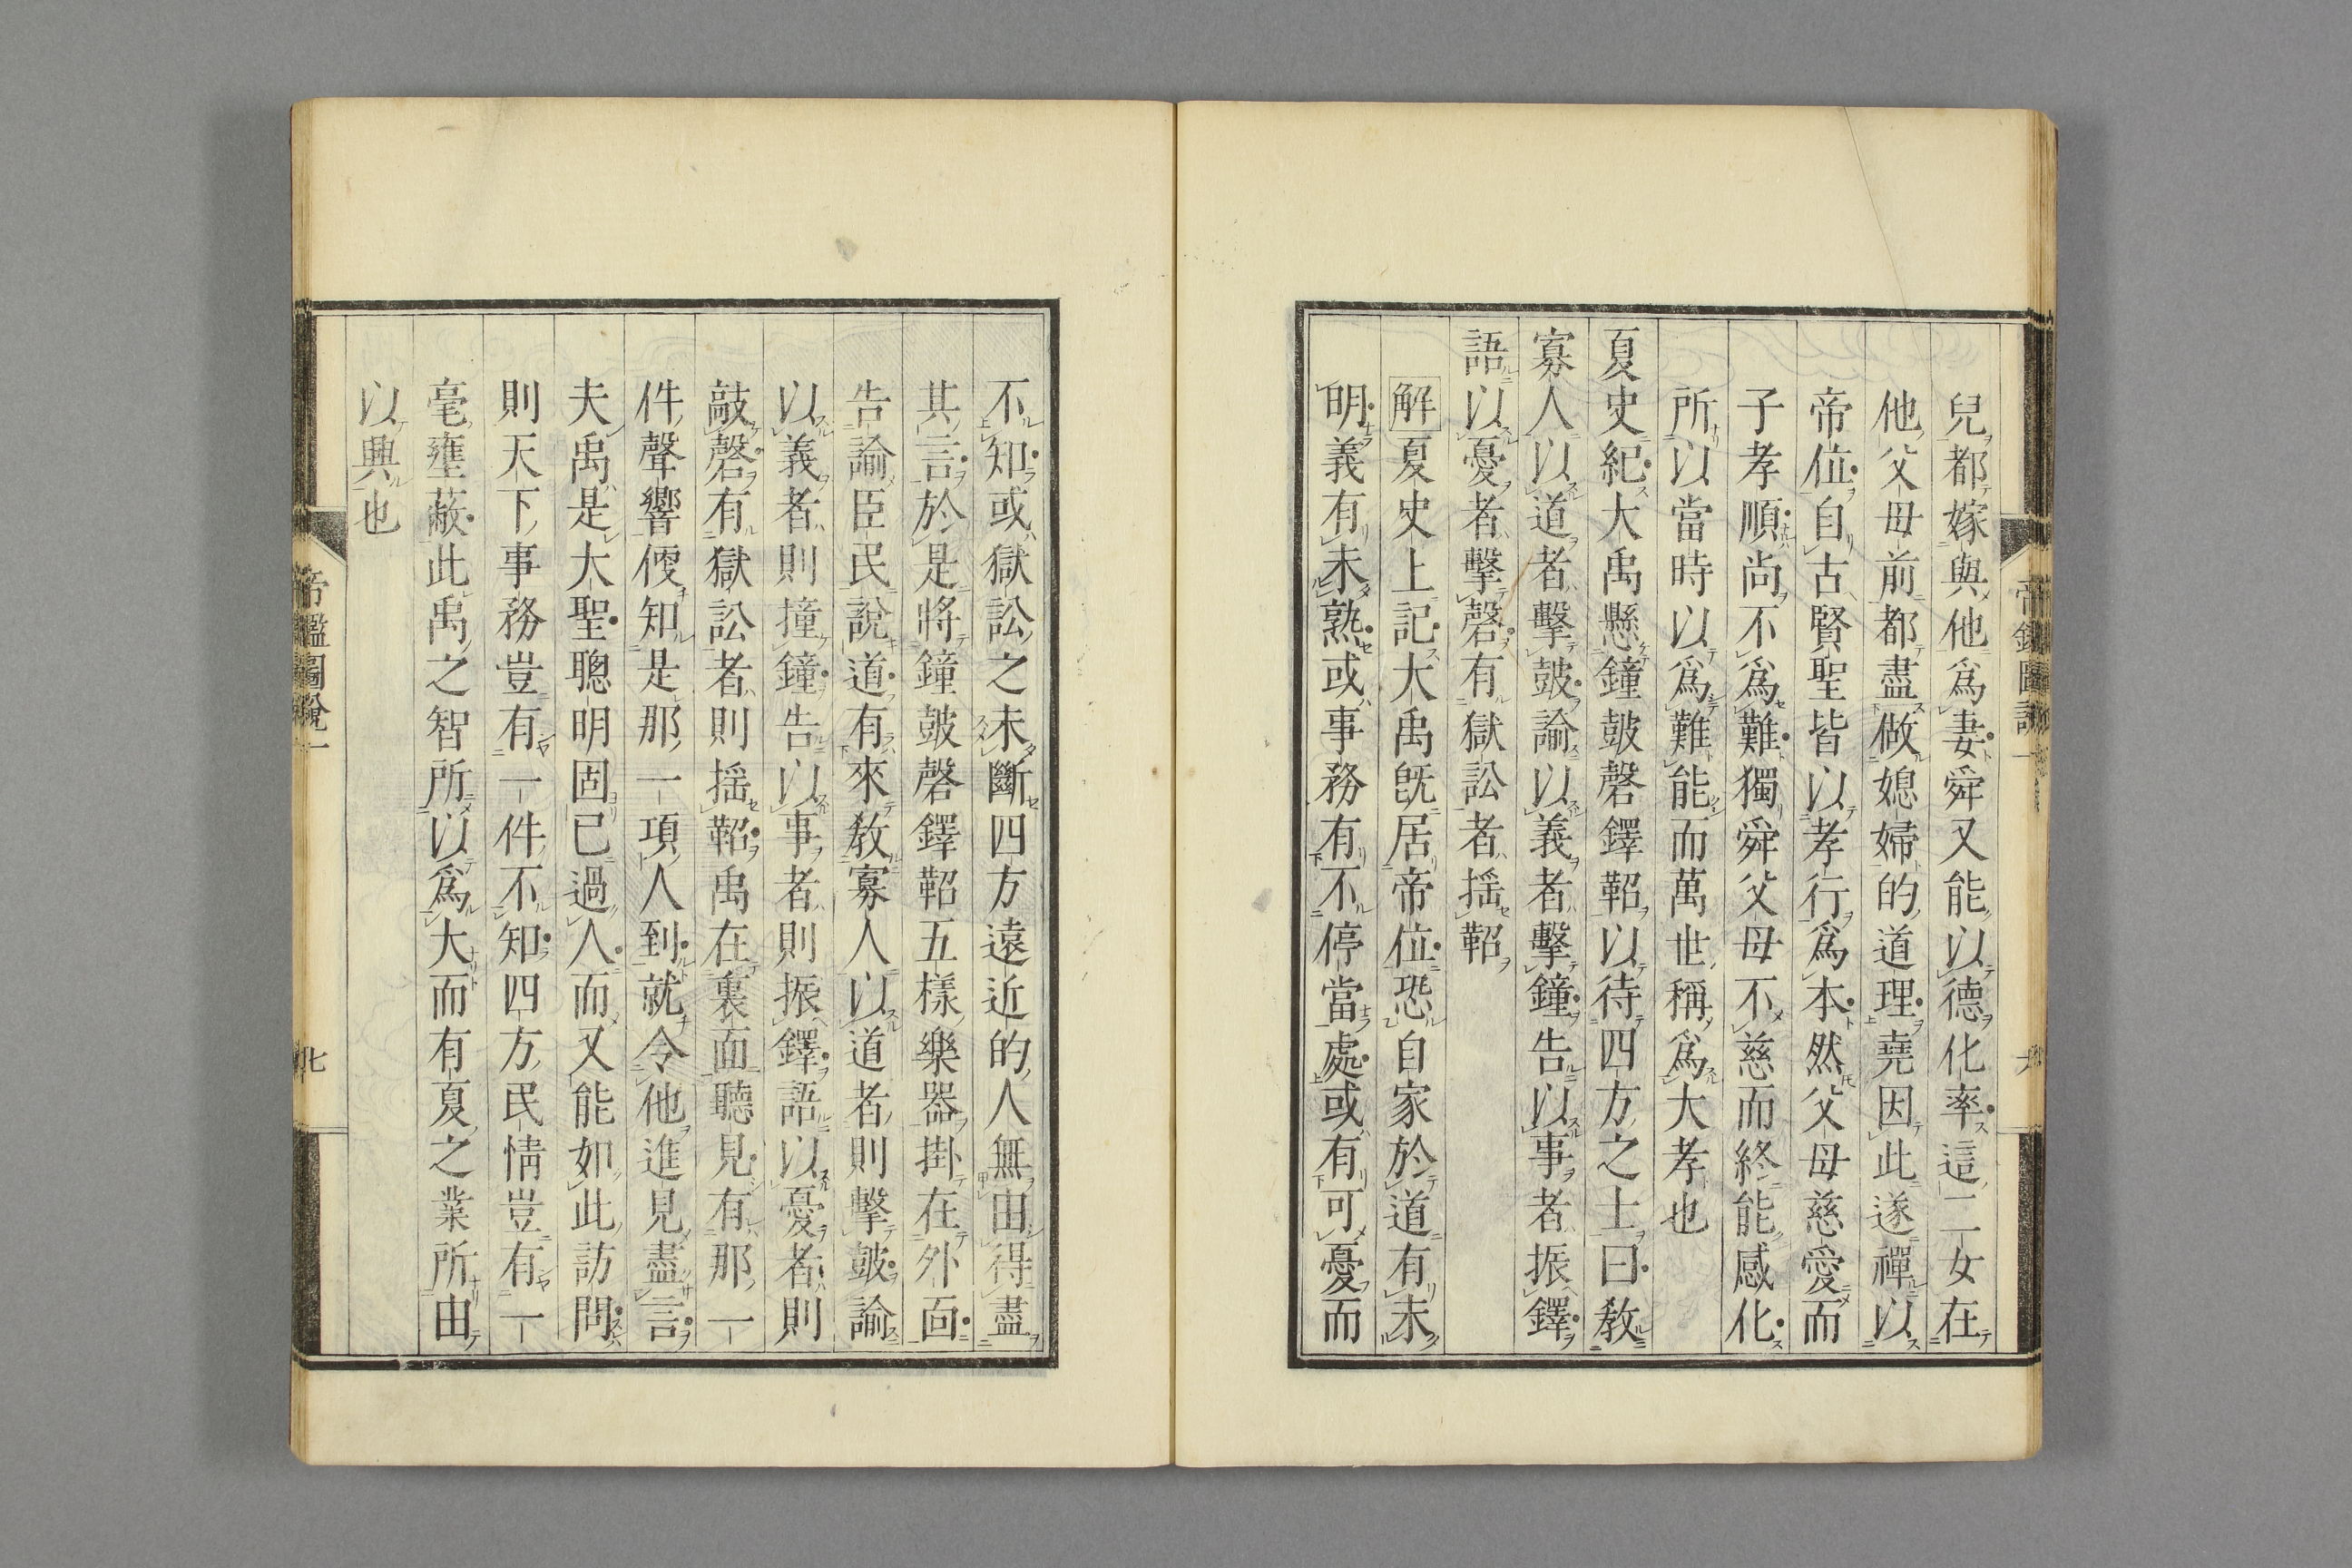 兒都嫁與他爲妻舜又能以德化率這二女在
他父母前都盡做媳婦的道理堯因此遂禪以
帝位自古賢聖皆以孝行爲本然父母慈愛而
子孝順尚不爲難獨舜父母不慈而終能感化
所以當時以爲難能而萬世稱爲大孝也
夏史紀大禹懸鐘皷磬鐸鞀以待四方之士曰教
寡人以道者擊皷諭以義者擊鐘告以事者振鐸
語以憂者擊磬有獄訟者揺鞀
解夏史上記大禹旣居帝位恐自家於道有未
明義有未熟或事務有不停當處或有可憂而
不知或獄訟之未斷四方遠近的人無由得盡
其言於是將鐘皷磬鐸鞀五樣樂器掛在外面
告諭臣民說道有來教寡人以道者則擊皷諭
以義者則撞鐘告以事者則振鐸語以憂者則
敲磬有獄訟者則揺鞀禹在裏面聽見有那一
件聲響便知是那一項人到就令他進見盡言
夫禹是大聖聰明固已過人而又能如此訪問
則天下事務豈有一件不知四方民情豈有一
毫壅蔽此禹之智所以爲大而有夏之業所由
以興也
帝鑑圖說一
七